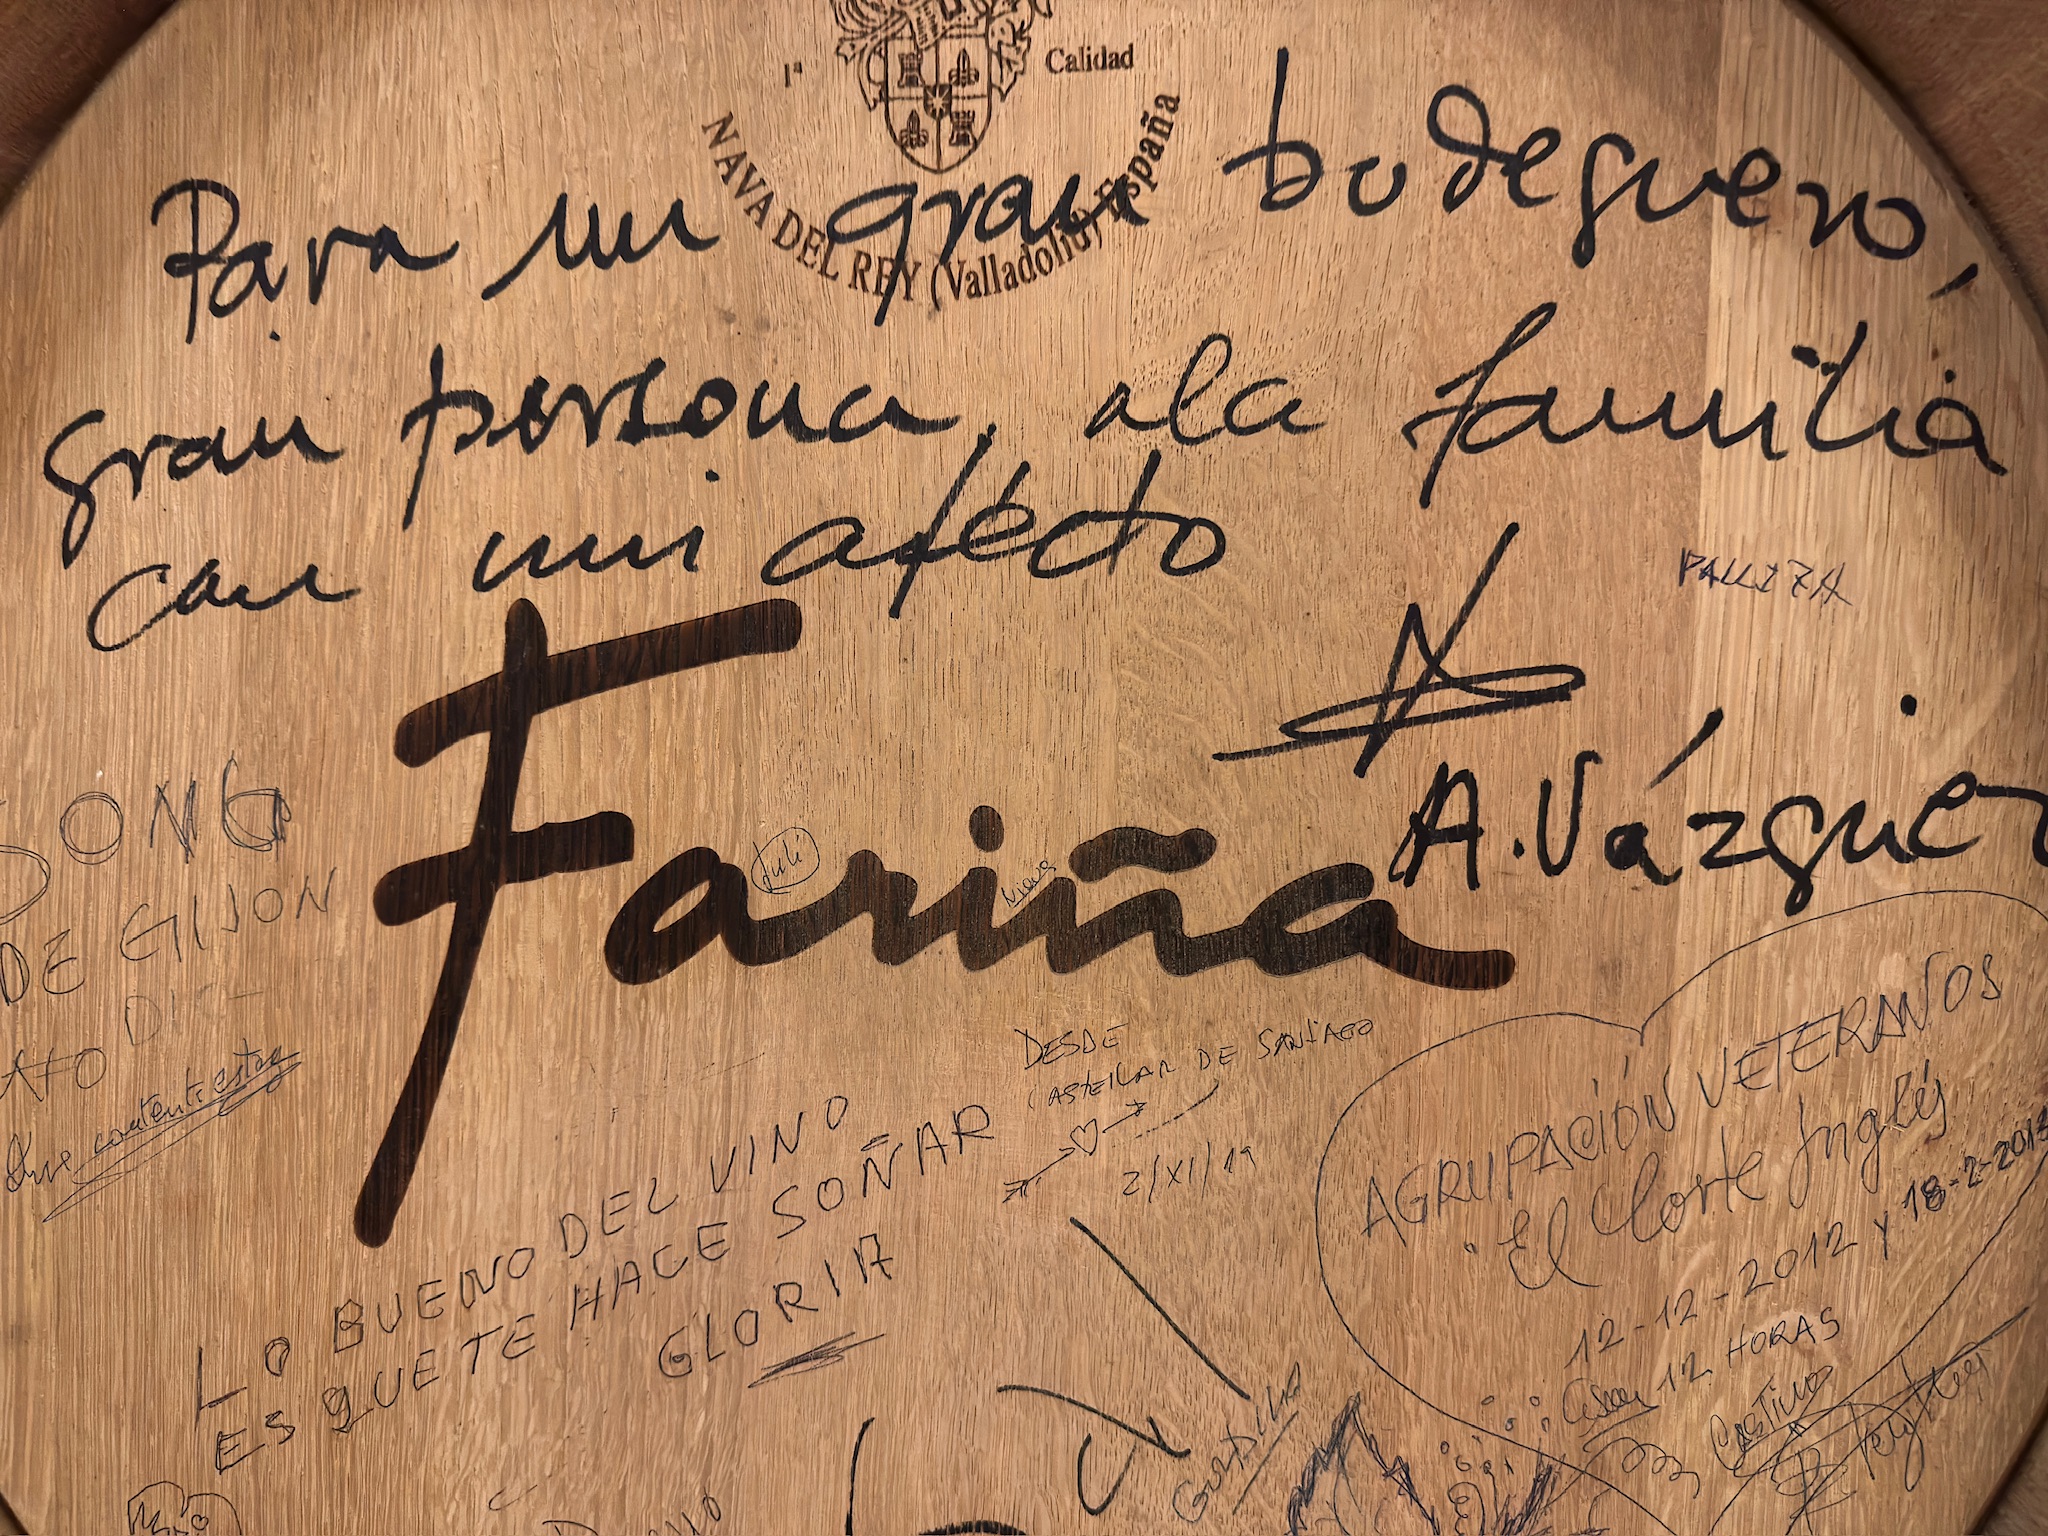 1ª Calidad
NAVA DEL REY (Valladolid) España
Para un gran bodeguero,
gran persona, a la familia
con mi afecto
PALLIZA
A. Vázquez
Fariña
Juli
Nieves
SONG
DE GIJON
AÑO
Lo BUENO DEL VINO
ES QUE TE HACE SOÑAR
GLORIA
DESDE
CASTELLAR DE SANTIAGO
2/XI/19
AGRUPACIÓN VETERANOS
"El Corte Inglés
12-12-2012 y 18-2-2013
12 HORAS